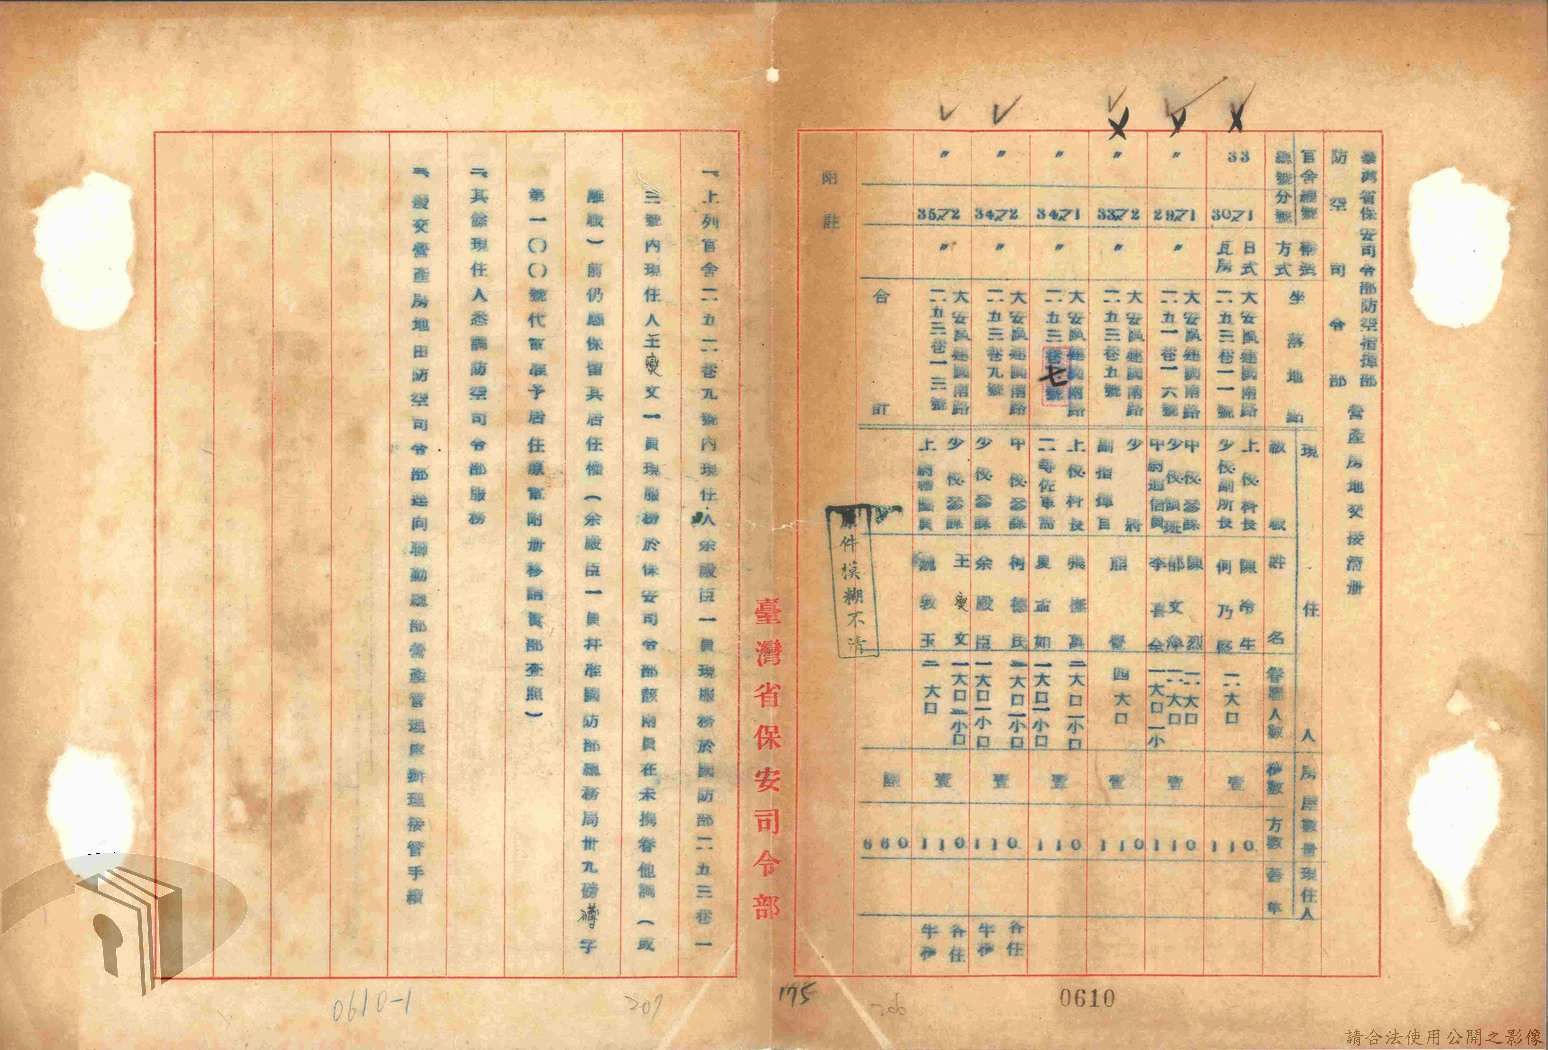 臺灣省保安司令部防空指揮部
防空司令部
營產房地交接清册
官舍總號
總號分號
構造
方式
坐落地點
現住人
級職
姓名
眷屬人數
房屋數量
棟數
方數
現住人
簽章
33
30之1
日式
瓦房
大安區建國南路
二五三巷一一號
上校科長
少校副所長
陳冷生
何乃賢
二大口
壹
110
〃
29之1
〃
大安區建國南路
二五一巷一六號
中校參謀
少校領班
中尉通信員
陳烈
李喜全
二大口
一大口一小
壹
110
〃
33之2
〃
大安區建國南路
二五三巷五號
少將
副指揮官
熊
四大口
壹
110
〃
34之1
大安區建國南路
二五三巷七號
上校科長
二等佐軍需
張
如
二大口一小口
一大口一小口
壹
110
〃
34之2
〃
大安區建國南路
二五三巷九號
中校參謀
少校參謀
柯德民
余殿臣
二大口一小口
一大口一小口
壹
110
各住
半棟
〃
35之2
〃
大安區建國南路
二五三巷一三號
少校參謀
上尉
王變文
魏敦玉
一大口二小口
二大口
壹
110
各住
半棟
合計
陸
660
附註
原件模糊不清
臺灣省保安司令部
一、上列官舍二五三巷九號內現住人余殿臣一員現服務於國防部二五三巷一
三號內現住人王變文一員現服務於保安司令部該兩員在未携眷他調(或
離職)前仍懇保留其居住權(余殿臣一員幷准國防部總務局卅九磅
字
第一〇〇號代電准予居住原電附册移請貴部查照)
二、其餘現住人悉調防空司令部服務
三、擬交營產房地由防空司令部逕向聯勤總部營產管理處辦理接管手續
0610-1
207
175
206
0610
請合法使用公開之影像